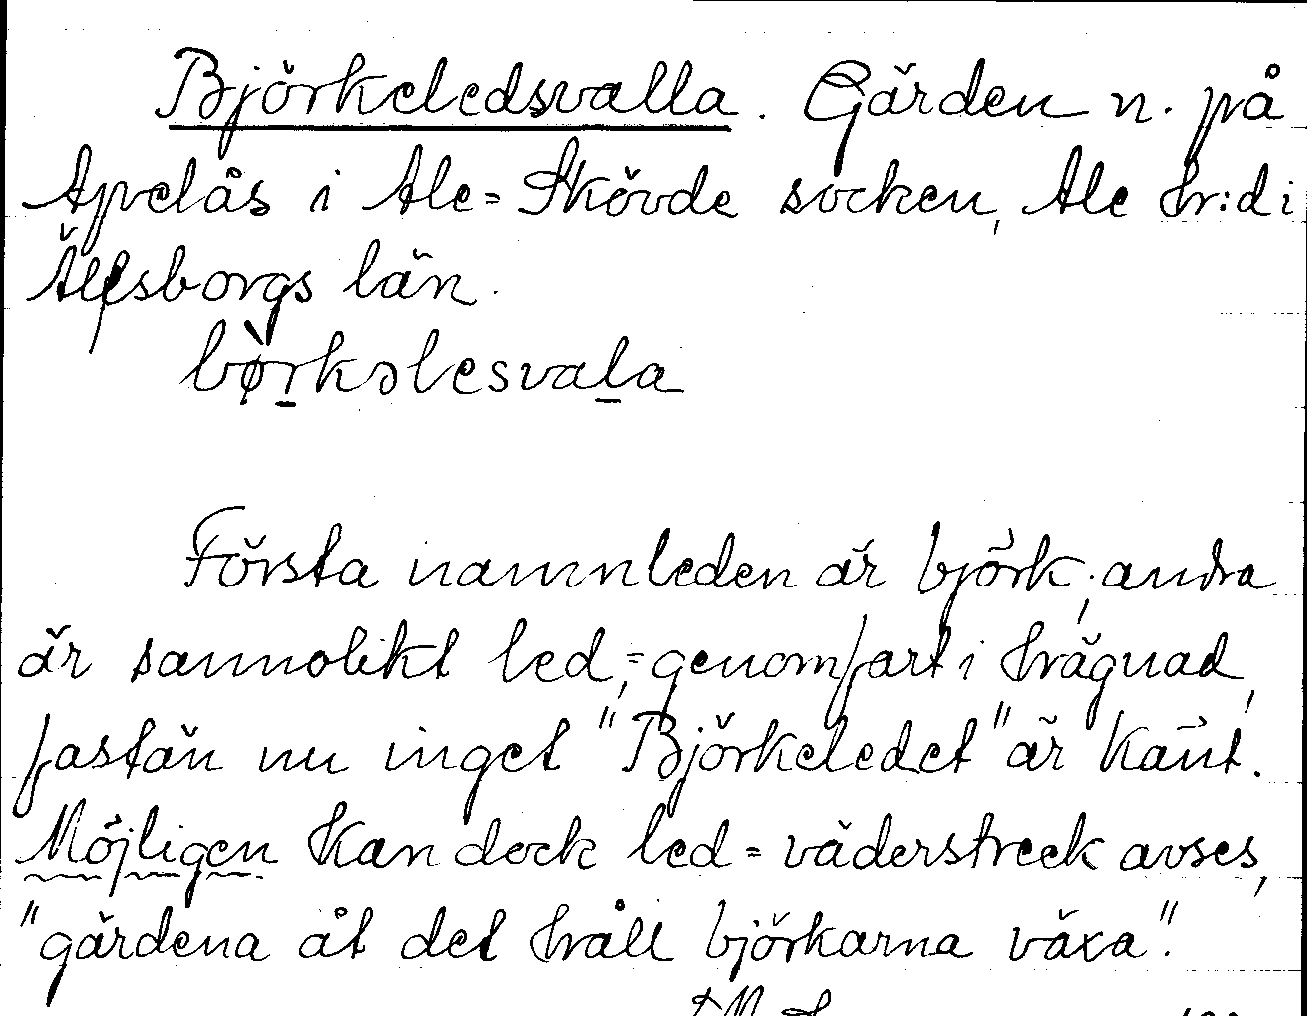 Björkeledsvalla. Gärden n. på
Apelås i Ale=Skövde socken, Ale hr:d i
Älfsborgs län.
bø̀rkəlesvala
Första namnleden är björk; andra
är sannolikt led,=genomfart i hrägnad,
fastän nu inget "Björkeledet" är känt.
Möjligen kan dock led=väderstreck avses,
"gärdena åt det håll björkarna växa".